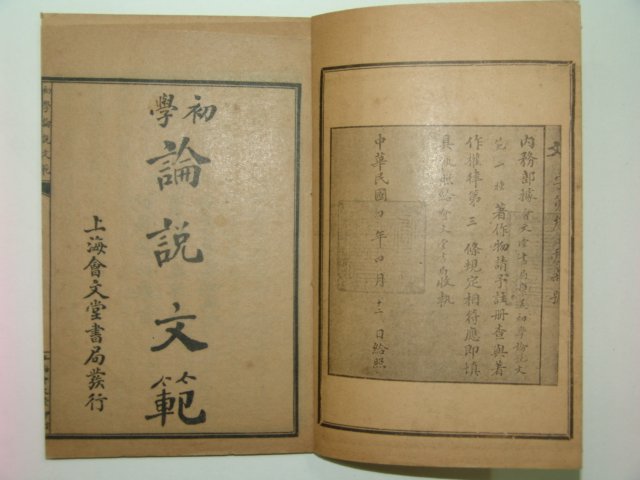 內務部據會文堂書局與呈初學論說文
範一種著作物請予註冊查與著
作權律第三條規定相符應即填
具執照給會文堂書局收執
中華民國 年四月 十二 日給照
初學
論說文範
上海會文堂書局發行
初學論說文範